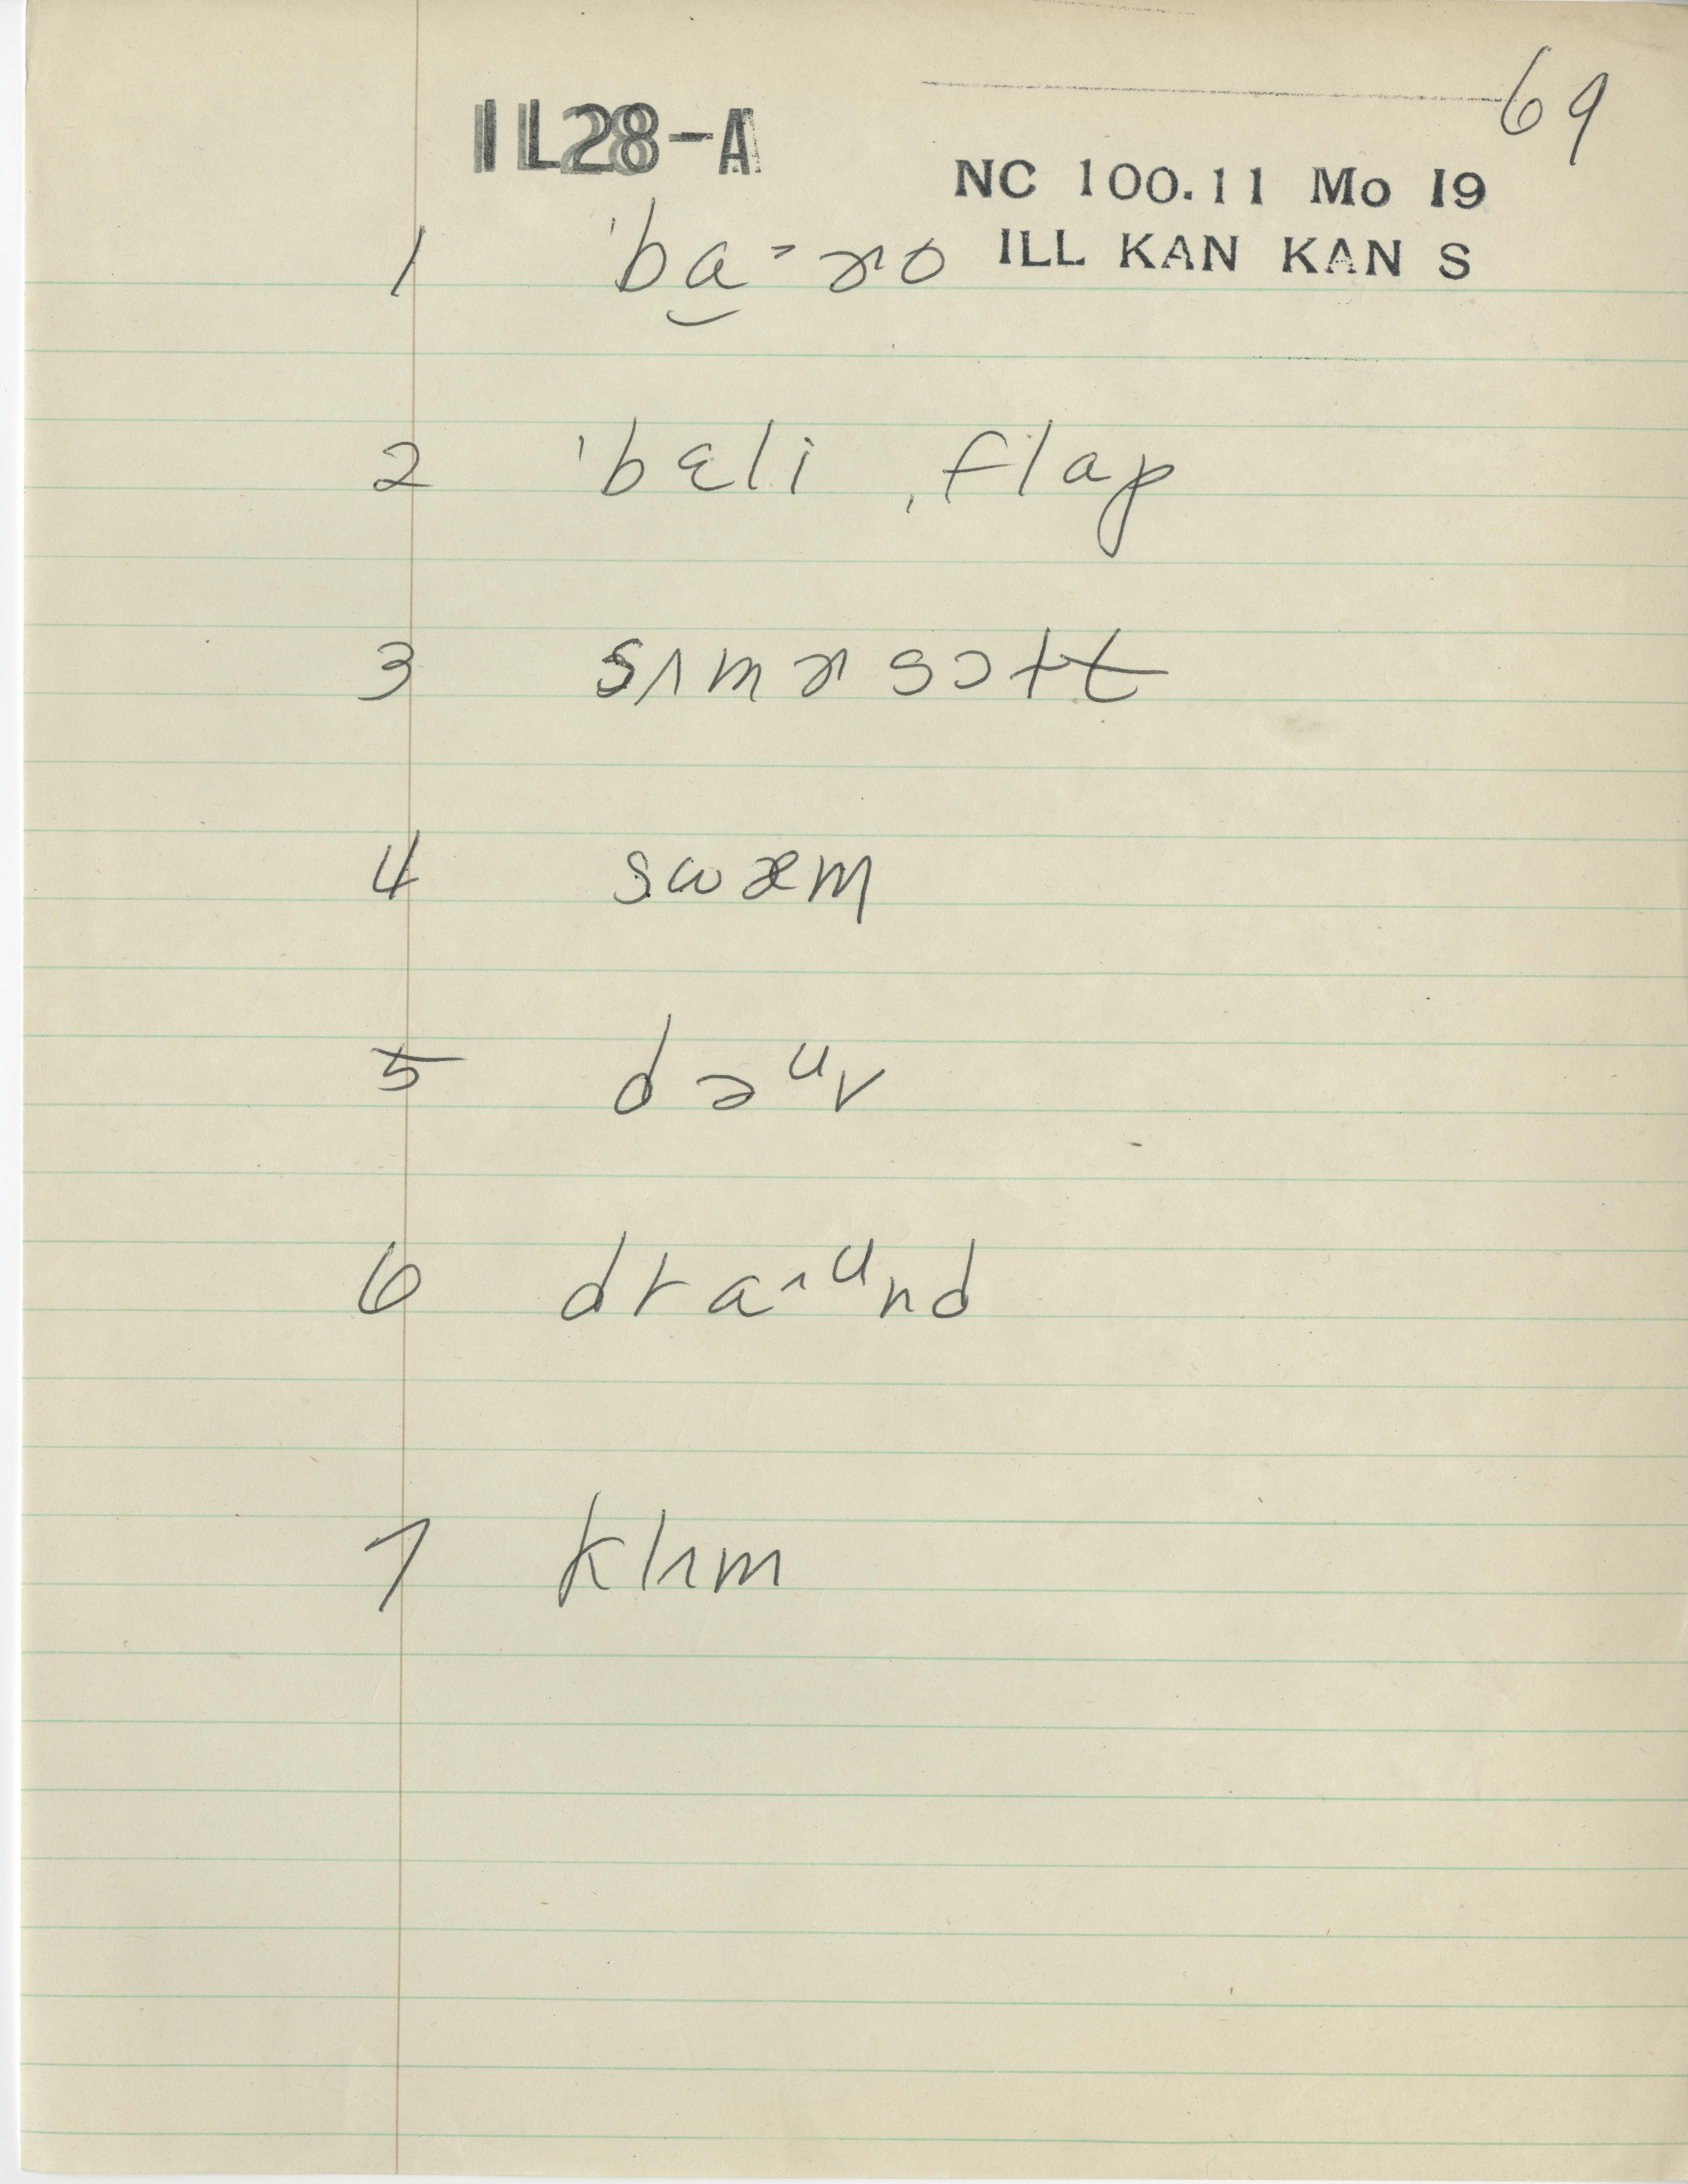 69
IL28-A
NC 100.11 Mo 19
ILL KAN KAN S
1 ˈba̯ˑɚo
2 ˈbɛli ˌflap
3 sʌmɚsɔtt
4 swæm
5 dəᵘv
6 draˑᵘnd
7 klʌm